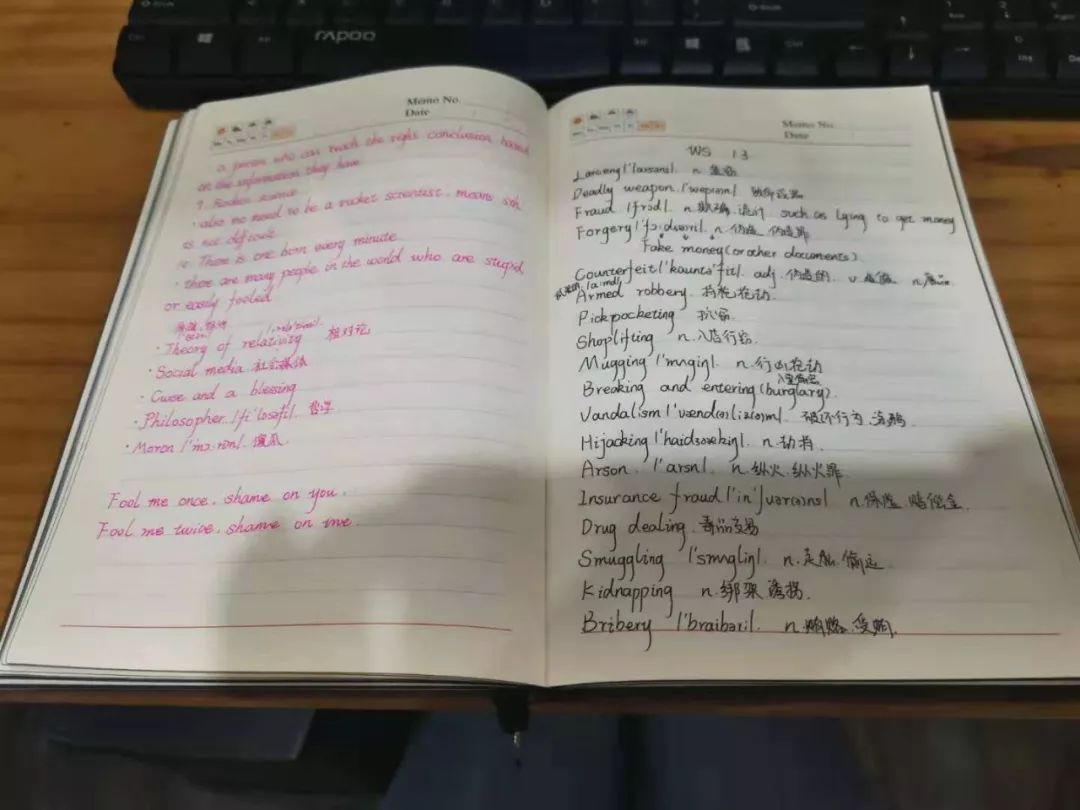 RAPOO
Memo No.
Date
a person who can reach the right conclusion based
on the information they have
9. Rocket science
· also no need to be a rocket scientist, means sth
is not difficult
10. There is one born every minute
· there are many people in the world who are stupid
or easily fooled
· Theory of relativity 相对论
· Social media 社会媒体
· Curse and a blessing
· Philosopher 哲学
· Moron 傻瓜
Fool me once, shame on you.
Fool me twice, shame on me.
Memo No.
Date
WS 13
n.
Deadly weapon
Fraud n. 欺骗 诡计 such as lying to get money
Forgery n. 伪造 伪造罪
Fake money (or other documents)
Counterfeit adj. 伪造的 v. n.
Armed robbery 持枪抢劫
Pickpocketing 扒窃
Shoplifting n. 入店行窃
Mugging n. 行凶抢劫
Breaking and entering (burglary).
Vandalism 破坏行为
Hijacking n. 劫持
Arson n. 纵火 纵火罪
Insurance fraud n. 保险 赔偿金
Drug dealing 毒品交易
Smuggling n. 走私 偷运
Kidnapping n. 绑架 诱拐
Bribery n. 贿赂 受贿